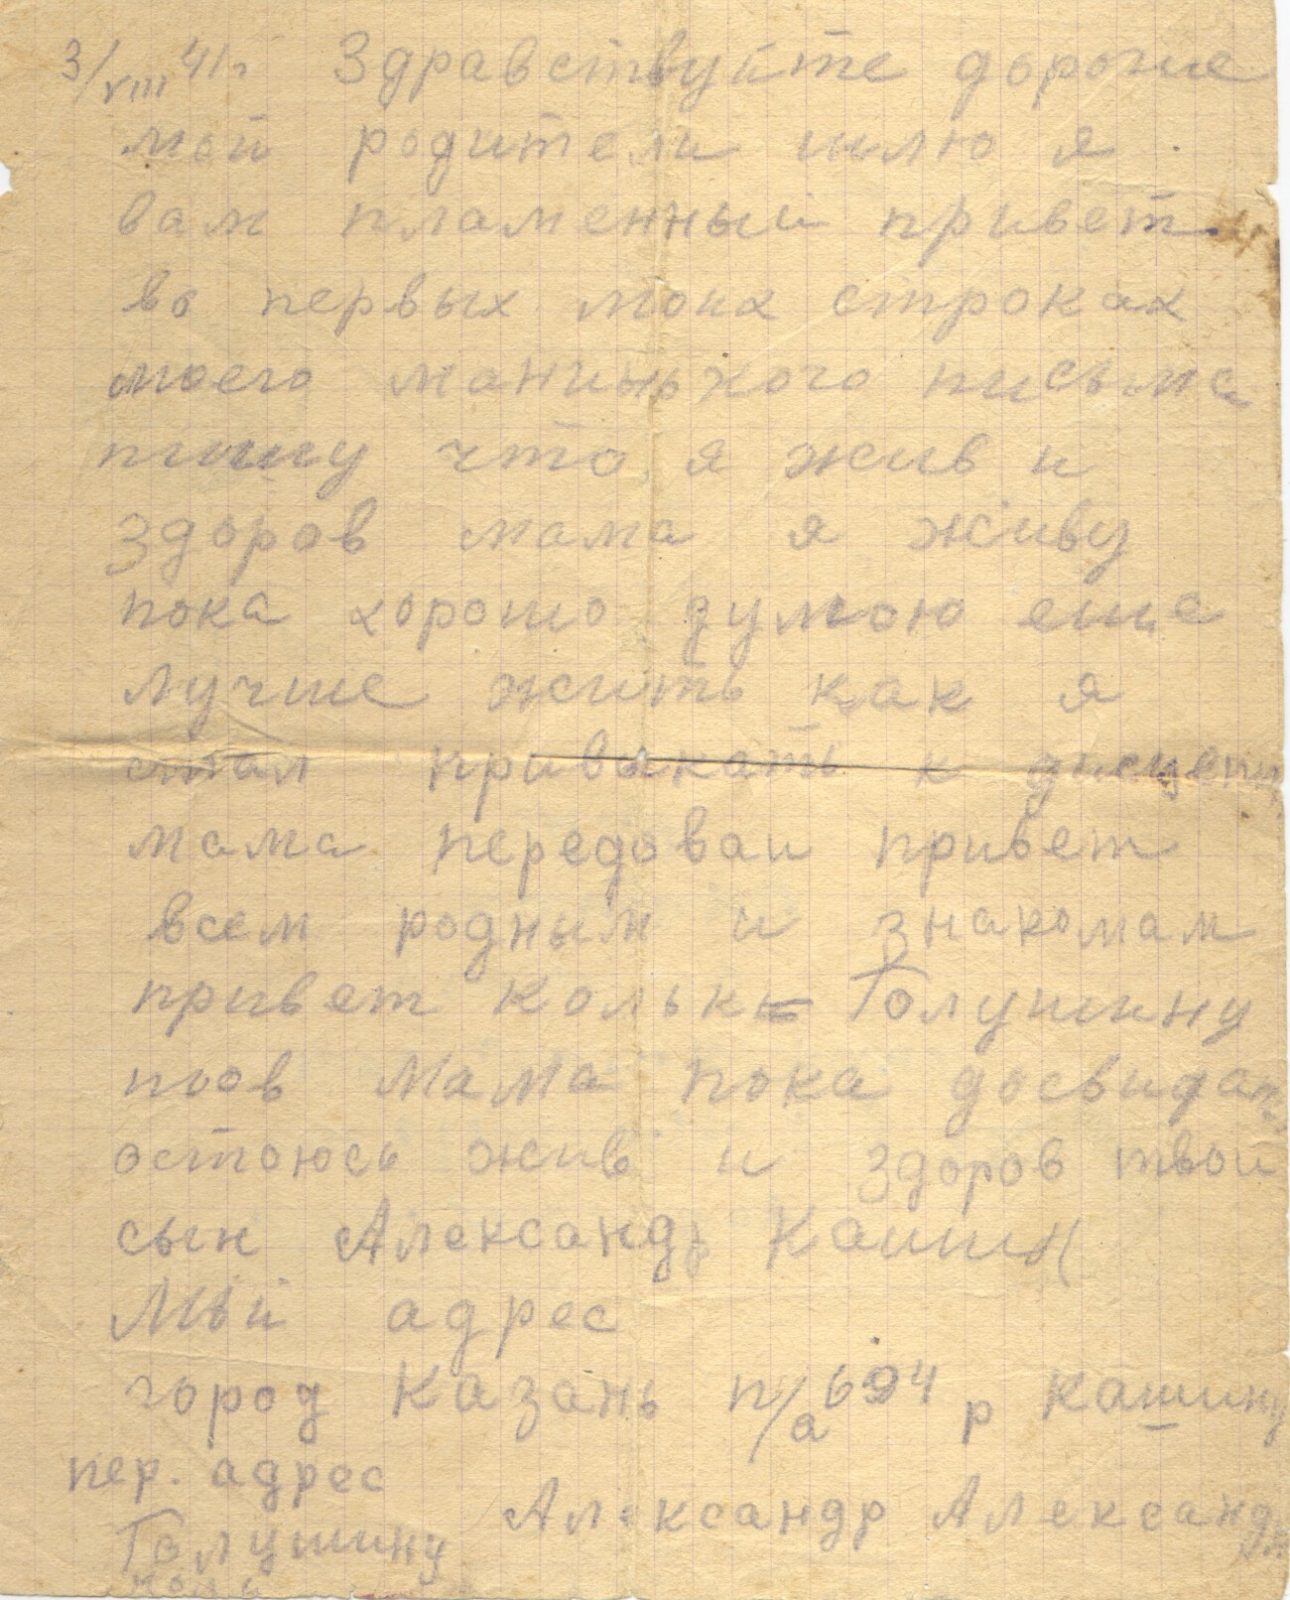 3/VIII 41г Здравствуйте дорогие
мои родители шлю я
вам пламенный привет
во первых моих строках
моего манинького письма
пишу что я жив и
здоров мама я живу
пока хорошо думою еще
лучше жить как я
стал привыкать к
мама передоваи привет
всем родным и знакомам
привет Кольке Голушину
мама пока досвидан
остоюсь жив и здоров твои
сын Александр Кашин
Мой адрес
город Казань п/а 694 р Кашину
пер. адрес
Александр Александр
Голушину